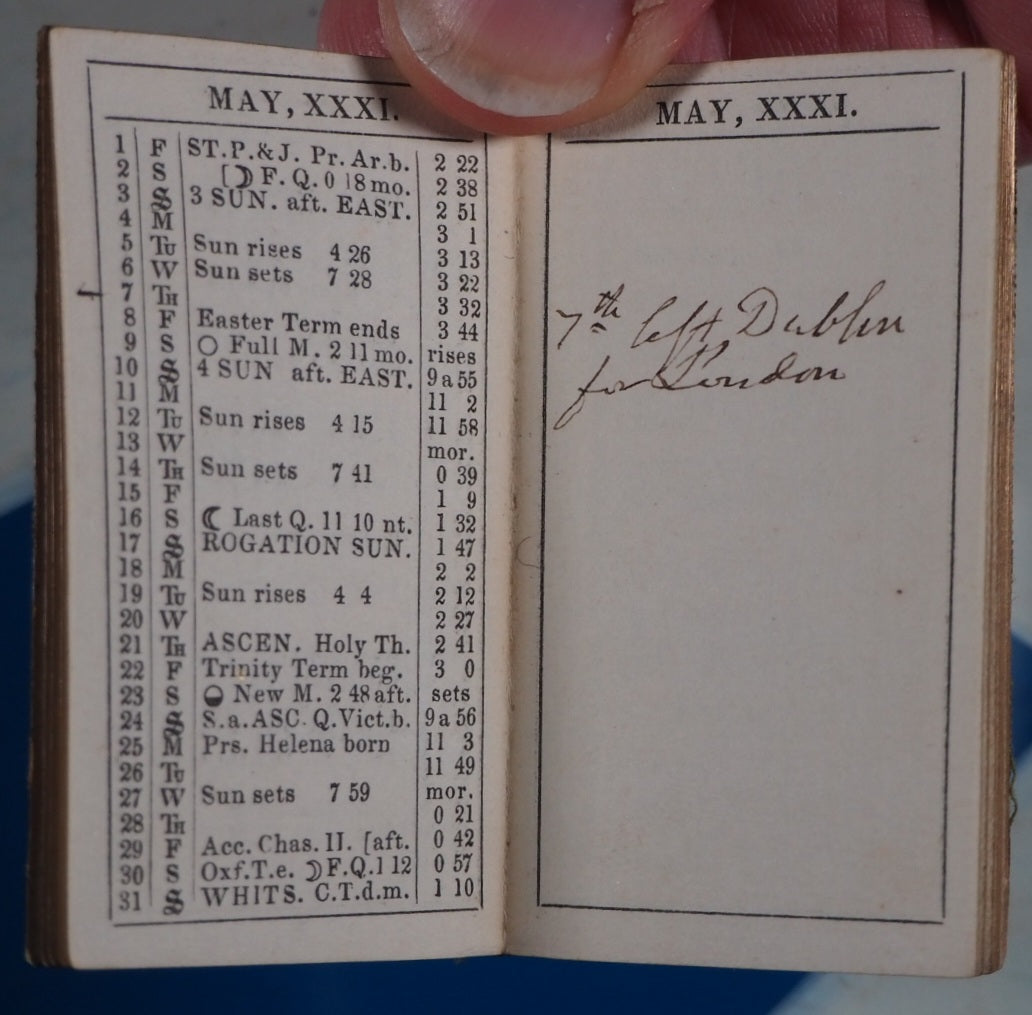 MAY, XXXI.
1 F ST.P.&J. Pr. Ar.b. 2 22
2 S [☽ F. Q. 0 18 mo. 2 38
3 S 3 SUN. aft. EAST. 2 51
4 M 3 1
5 TU Sun rises 4 26 3 13
6 W Sun sets 7 28 3 22
7 TH 3 32
8 F Easter Term ends 3 44
9 S ○ Full M. 2 11 mo. rises
10 S 4 SUN aft. EAST. 9 a 55
11 M 11 2
12 TU Sun rises 4 15 11 58
13 W mor.
14 TH Sun sets 7 41 0 39
15 F 1 9
16 S ☾ Last Q. 11 10 nt. 1 32
17 S ROGATION SUN. 1 47
18 M 2 2
19 TU Sun rises 4 4 2 12
20 W 2 27
21 TH ASCEN. Holy Th. 2 41
22 F Trinity Term beg. 3 0
23 S New M. 2 48 aft. sets
24 S S.a.ASC. Q.Vict.b. 9 a 56
25 M Prs. Helena born 11 3
26 TU 11 49
27 W Sun sets 7 59 mor.
28 TH 0 21
29 F Acc. Chas. II. [aft. 0 42
30 S Oxf.T.e. ☽ F.Q.1 12 0 57
31 S WHITS. C.T.d.m. 1 10
MAY, XXXI.
7th left Dublin
for London